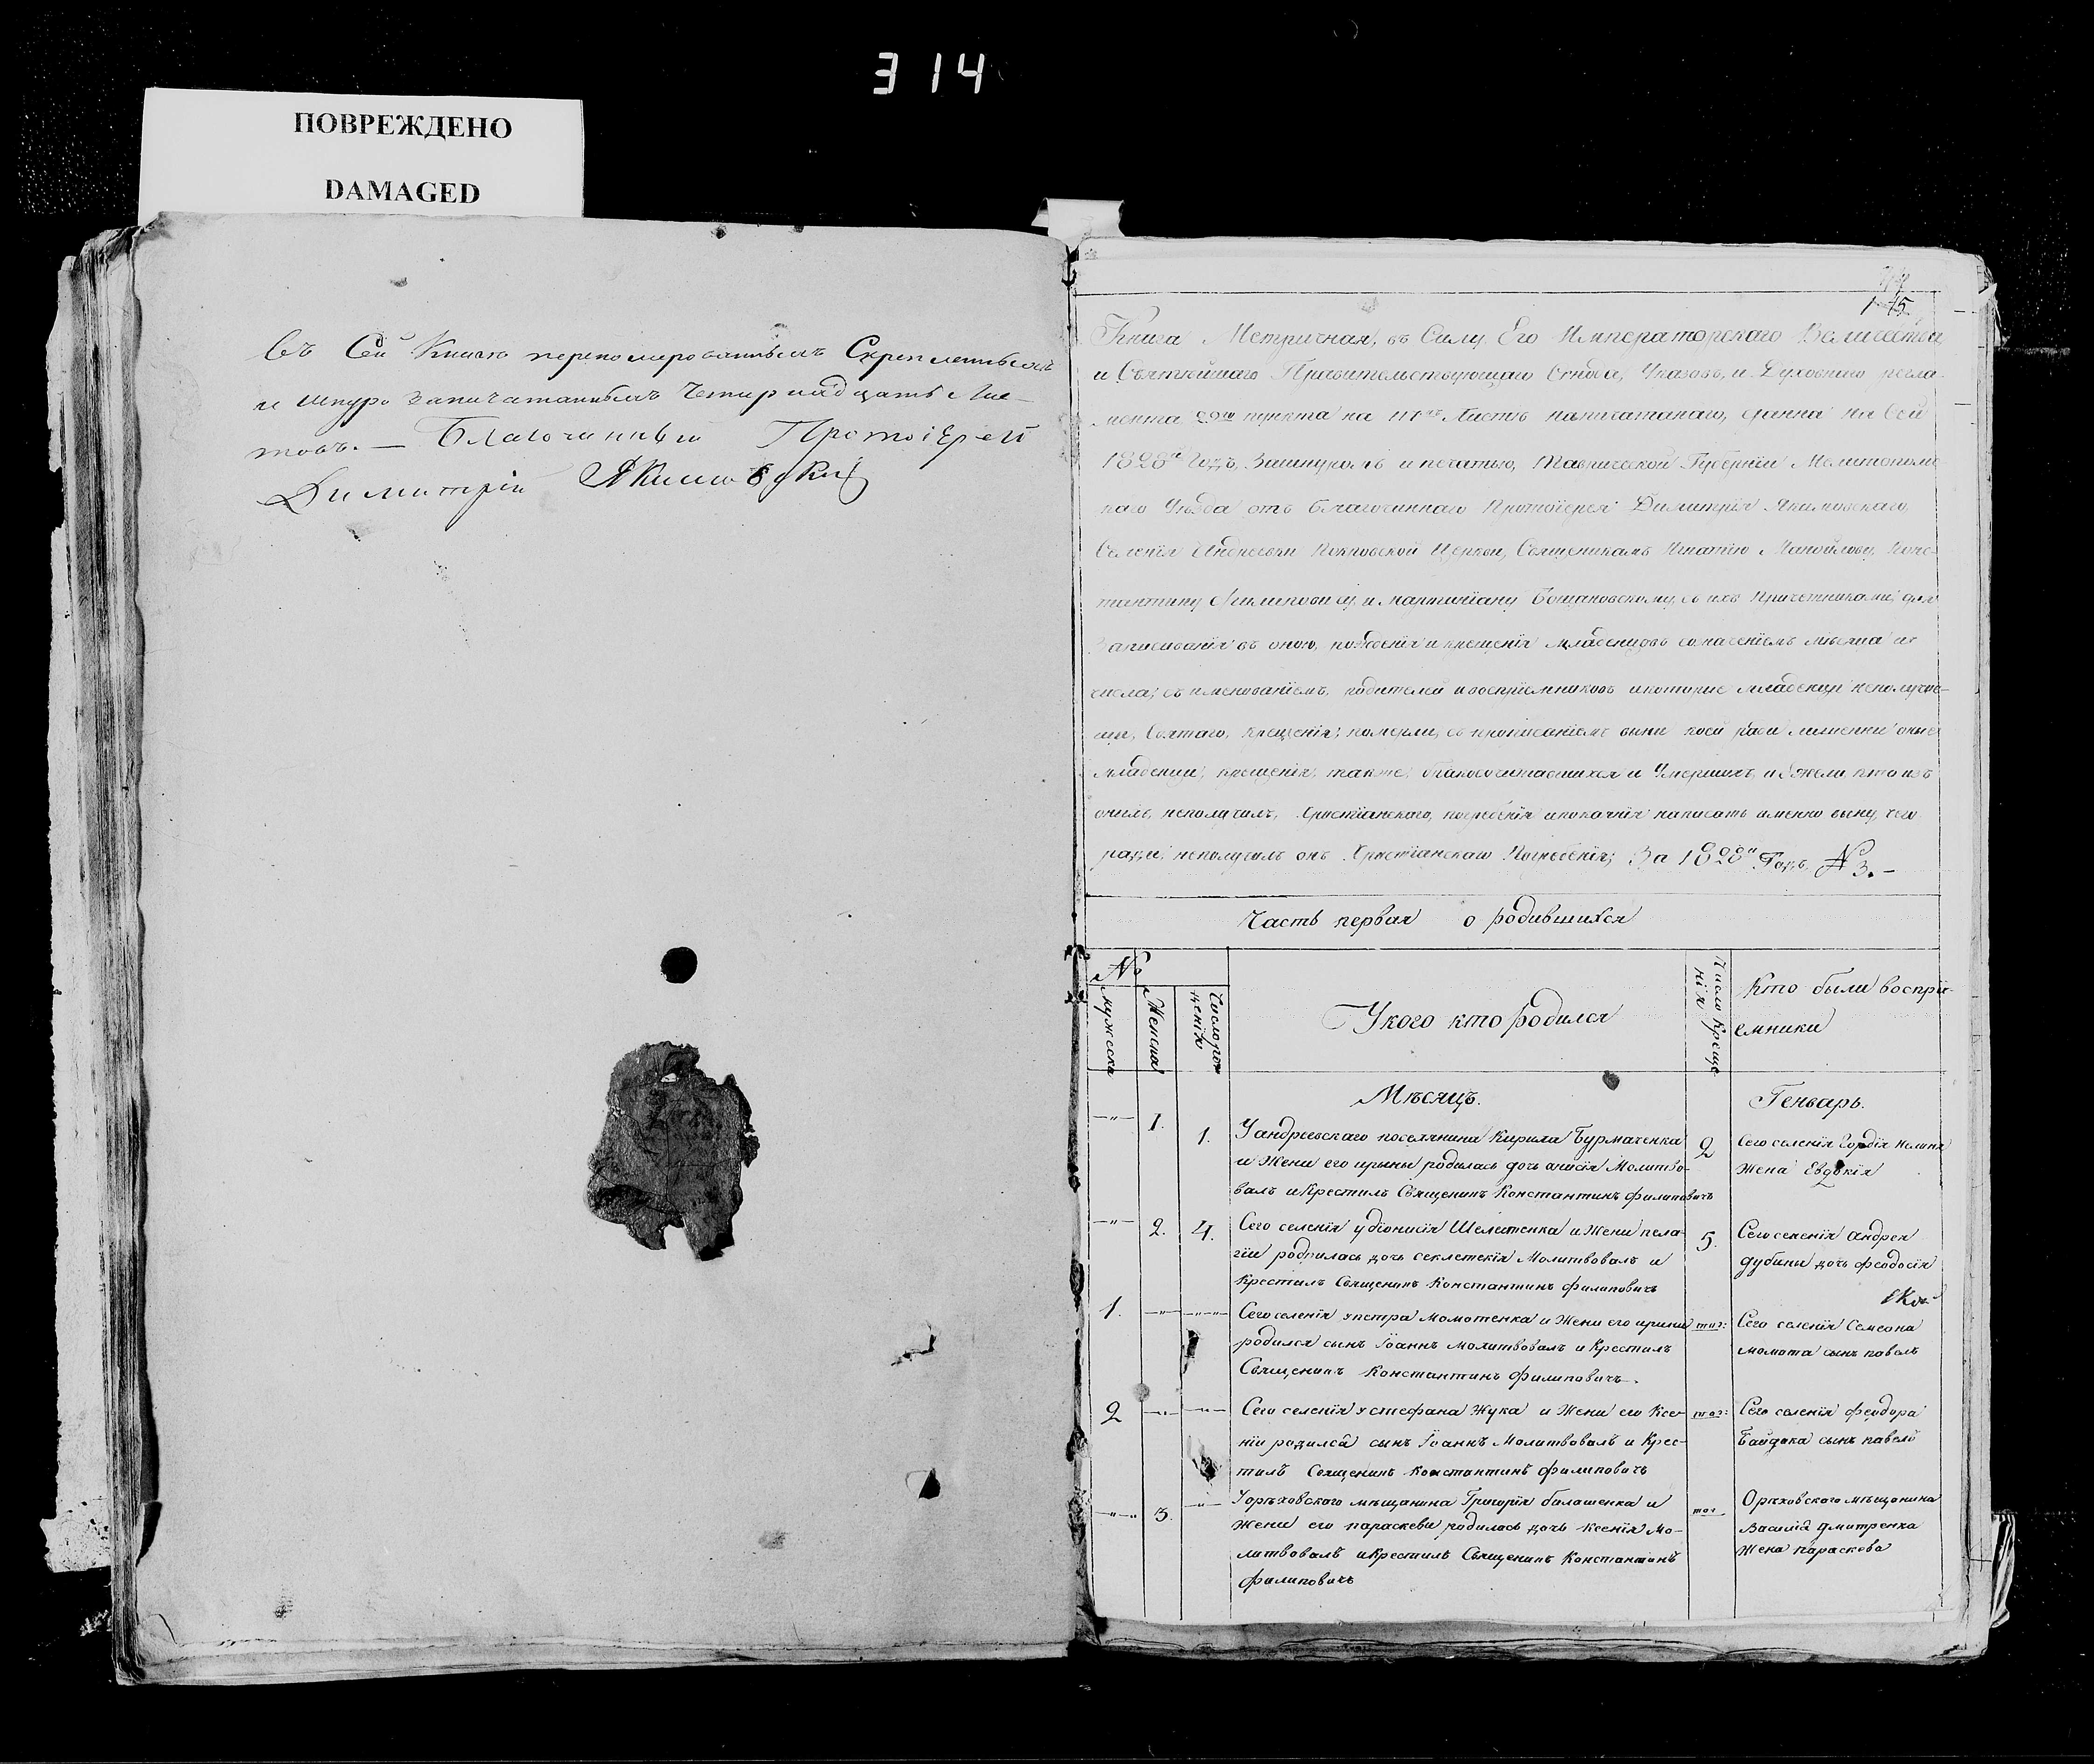 314
ПОВРЕЖДЕНО
DAMAGED
Въ Сей Книге перенумерованныхъ Скрепленныхъ
и шнуро запечатанныхъ Четирнадцать Лис-
товъ. — Благочинный Протоіерей
Димитрій Якимовскій
15
Книга Метричная, въ Силу Его Императорскаго Величества
и Святѣйшаго Правительствующаго Сѵнода, Указовъ, и Духовнаго регла-
мента 29го пункта на листѣ напичатанаго, дана на Сей
1828й Годъ, Зашнуромъ и печатью, Таврической Губерніи Мелитополь
каго Уѣзда отъ благочиннаго Протоіерея Димитрія Якимовскаго,
Селенія Андреевки Покровской Церкви, Священикамъ Игнатію Манойлову, Конс-
тантину Филиповичу, и мартиніану Бощановскому, съ ихъ Причетниками, для
Записыванія въ оною, рожденія и крещенія младенцовъ созначеніемъ мѣсяца и
числа; съ именованіемъ, родителей и воспріемниковъ и которые младенци неполучив-
ши, Святаго, крещенія; померли, съ прописаніемъ вини коей ради лишенни оные
младенци, крещенія, также; бракосочитавшихся и Умершихъ, и Ужели кто изъ
онихъ, неполучилъ, Христіанскаго, погребенія и покаянія написать именно вину, чего
ради; неполучилъ онъ Христіанскаго Погребенія; За 1828й Годъ № 3. –
Часть первая о родившихся
№
мужеска
Женска
Число рож
денія
Укого кто родился
Число Креще
нія
Кто были воспрі-
емники
Мѣсяцъ.
Генварь.
—"— 1. 1.
Уандреевскаго поселянина Кирила Бурмаченка
и Жени его ирыны родилась дочь анисія Молитво-
валъ и Крестилъ Священикъ Константинъ филиповичъ
2
Сего селенія Гордія
Жена Евдокія
—"— 2. 4.
Сего селенія удіонисія Шелетенка и Жени пела-
гіи родилась дочь секлетекія Молитвовалъ и
Крестилъ Священикъ Константинъ филиповичъ
5.
Сего селенія андрея
дубины дочь феодосія
1. —"— —"—
Сего селенія упетра момотенка и Жени его ирини
родился сынъ Іоаннъ молитвовалъ и Крестилъ
Священикъ Константинъ филиповичъ.
тог:
Сего селенія Семеона
момота сынъ павелъ
2 —"— —"—
Сего селенія устефана Жука и Жени его Ксе-
ніи родился сынъ Іоаннъ Молитвовалъ и Крес-
тилъ Священикъ Константинъ филиповичъ
тог:
Сего селенія феодора
Байдака сынъ павелъ
—"— 3. —"—
Уорѣховского мѣщанина Григорія билашенка и
Жени его параскеви родилась дочь ксенія Мо-
литвовалъ и Крестилъ Священикъ Константинъ
филиповичъ
тог
Орѣховского мѣщанина
Василія дмитренка
Жена параскева